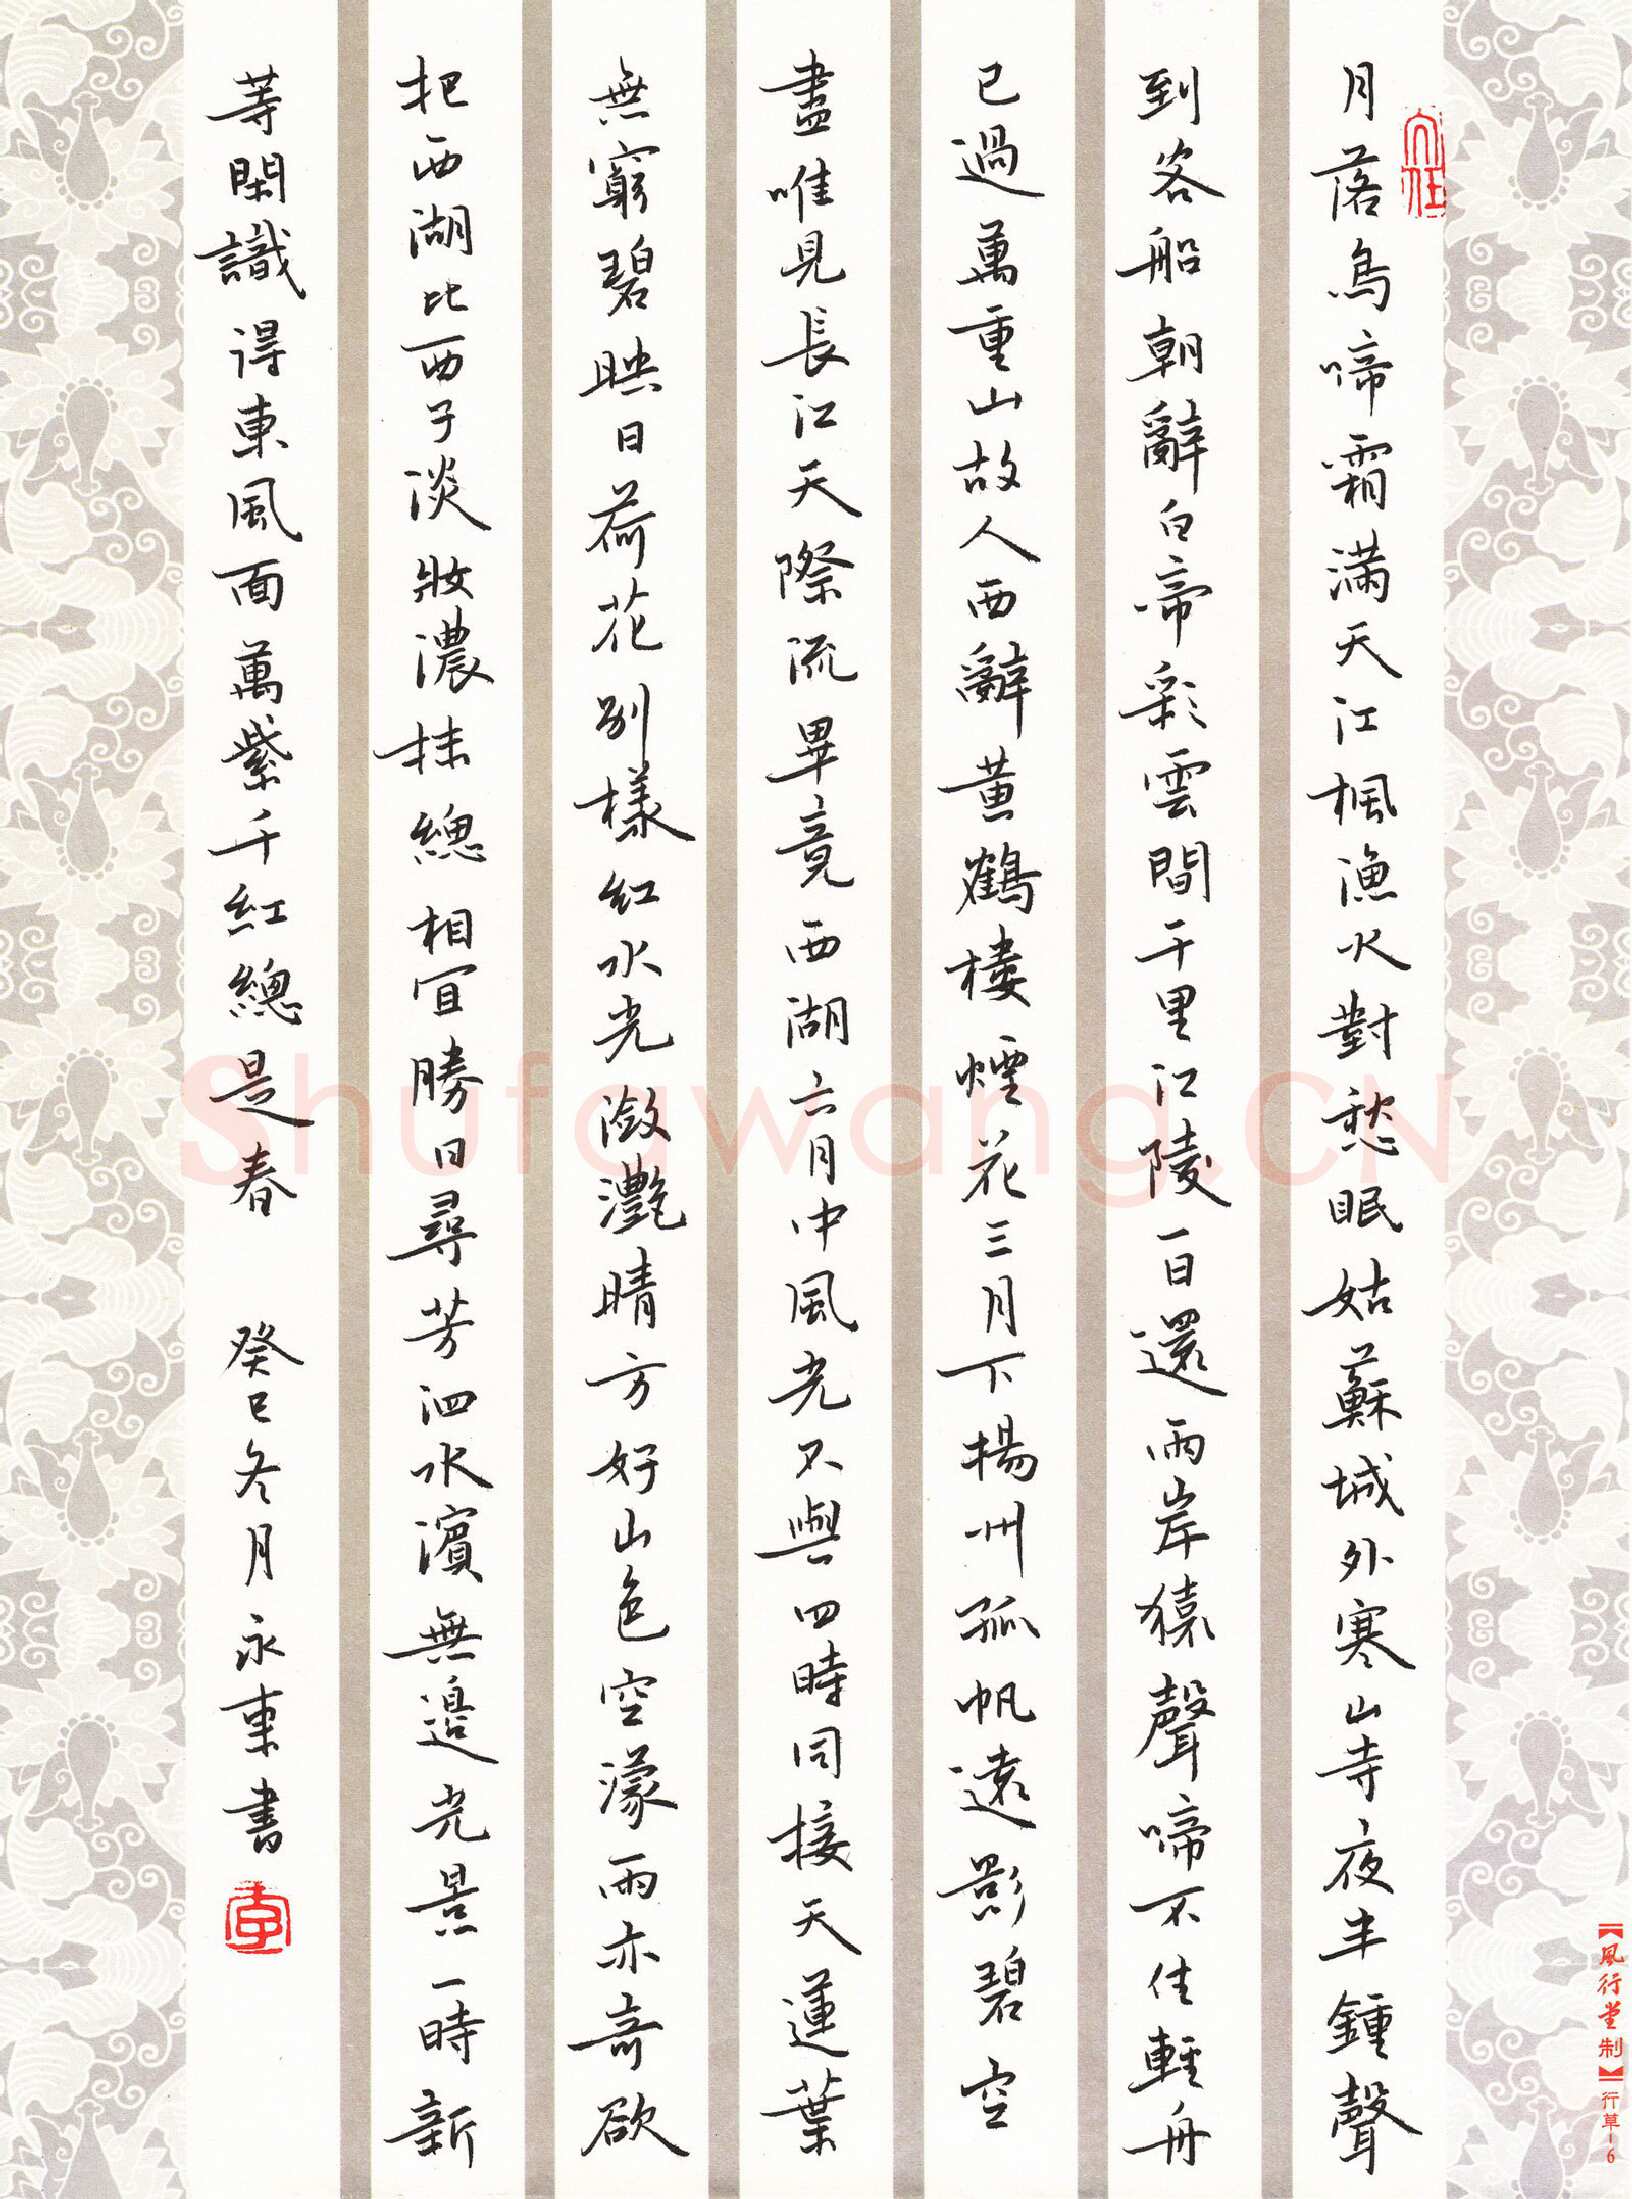 月落烏啼霜滿天江楓漁火對愁眠姑蘇城外寒山寺夜半鍾聲
到客船朝辭白帝彩雲間千里江陵一日還兩岸猿聲啼不住輕舟
已過萬重山故人西辭黃鶴樓煙花三月下揚州孤帆遠影碧空
盡唯見長江天際流畢竟西湖六月中風光不與四時同接天蓮葉
無窮碧映日荷花別樣紅水光瀲灩晴方好山色空濛雨亦奇欲
把西湖比西子淡妝濃抹總相宜勝日尋芳泗水濱無邊光景一時新
等閑識得東風面萬紫千紅總是春 癸巳冬月永東書
李
Shufawang.CN
【風行堂制】行草-6